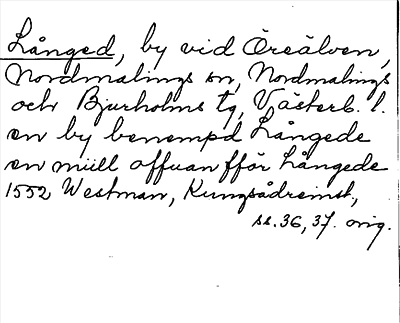 Långed, by vid Öreälven,
Nordmalings sn, Nordmalings
och Bjurholms tg, Västerb. l.
en by benempd Långede
en müll offuan fför Långede
1552 Westman, Kungsådreinst.,
ss. 36, 37. orig.